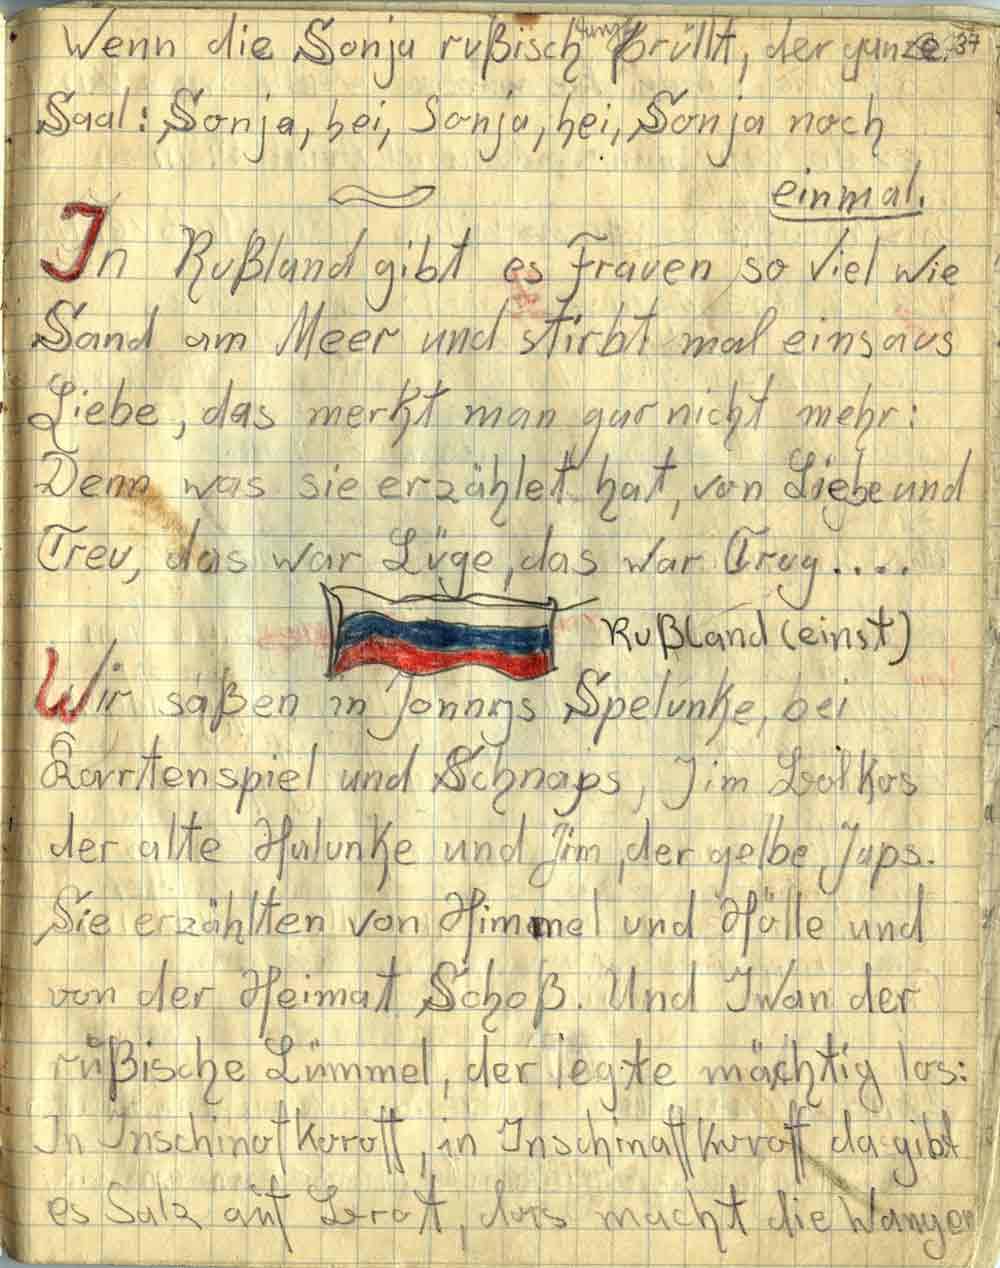 37
Wenn die Sonja rußisch tanzt brüllt, der ganze
Saal: Sonja, hei, Sonja, hei, Sonja noch
einmal.
In Rußland gibt es Frauen so viel wie
Sand am Meer und stirbt mal eins aus
Liebe, das merkt man gar nicht mehr:
Denn was sie erzählet hat, von Liebe und
Treu, das war Lüge, das war Trug....
Rußland (einst)
Wir saßen in Jonnys Spelunke, bei
Karrtenspiel und Schnaps, Jim
der alte Halunke und Jim, der gelbe Japs.
Sie erzählten von Himmel und Hölle und
von der Heimat Schoß. Und Iwan der
rußische Lümmel, der legte mächtig los:
In in da gibt
es Salz auf Brot, das macht die Wangen